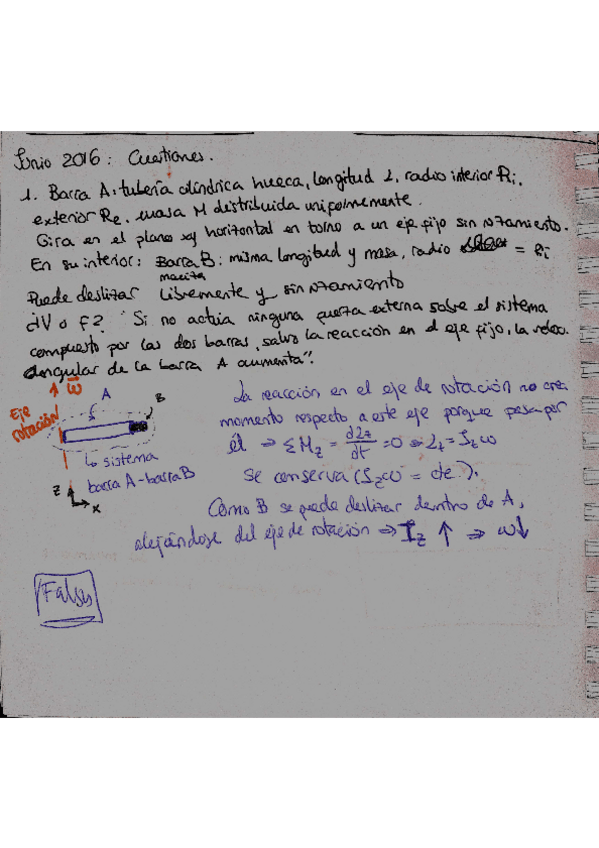 Junio 2016: Cuestiones.
1. Barra A: tubería cilíndrica hueca, longitud L, radio interior Ri,
exterior Re. masa M distribuida uniformemente.
Gira en el plano xy horizontal en torno a un eje fijo sin rozamiento.
En su interior: Barra B: misma longitud y masa, radio = Ri
maciza
Puede deslizar libremente y sin rozamiento
¿V o F? "Si no actúa ninguna fuerza externa sobre el sistema
compuesto por las dos barras, salvo la reacción en el eje fijo, la veloc.
angular de la barra A aumenta".
ω
A
B
Eje
rotación
sistema
barra A-barra B
z
x
La reacción en el eje de rotación no crea
momento respecto a este eje porque pasa por
él ⇒ ΣMz = dLz/dt = 0 ⇒ Lz = Izω
se conserva (Izω = cte).
Como B se puede deslizar dentro de A,
alejándose del eje de rotación ⇒ Iz ↑ ⇒ ω↓
Falso